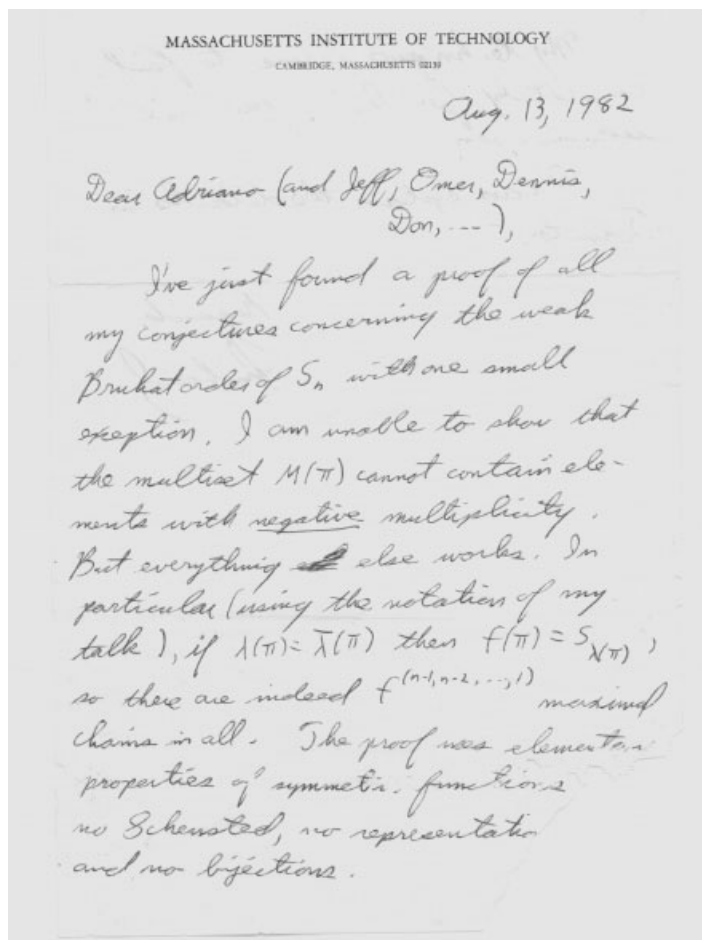 MASSACHUSETTS INSTITUTE OF TECHNOLOGY
CAMBRIDGE, MASSACHUSETTS 02139
Aug. 13, 1982
Dear Adriano (and Jeff, Omer, Dennis,
Don, ---),
I've just found a proof of all
my conjectures concerning the weak
Bruhat order of Sₙ with one small
exception. I am unable to show that
the multiset M(π) cannot contain ele-
ments with negative multiplicity.
But everything else works. In
particular (using the notation of my
talk), if λ(π) = λ̄(π) then f(π) = S_λ(π),
so there are indeed f^(n-1, n-2, ..., 1) maximal
chains in all. The proof uses elementar
properties of symmetri functions
no Schensted, no representatio
and no bijections.